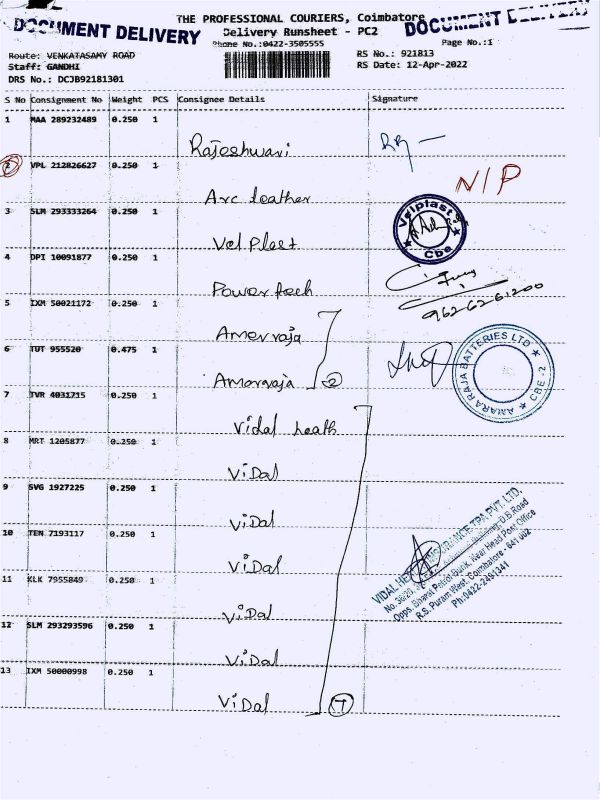 DOCUMENT DELIVERY
THE PROFESSIONAL COURIERS, Coimbatore
DOCUMENT DELIVERY
Delivery Runsheet - PC2
Phone No.:0422-3505555
Page No.:1
Route: VENKATASAMY ROAD
RS No.: 921813
Staff: GANDHI
RS Date: 12-Apr-2022
DRS No.: DCJB92181301
S No Consignment No Weight PCS Consignee Details Signature
1 MAA 289232489 0.250 1
Rajeshwari
2 VPL 212826627 0.250 1
N/P
Arc leather
3 SLM 293333264 0.250 1
Velplast
Cbe
Vel Plast
4 DPI 10091877 0.250 1
Power tech
962-62-61200
5 IXM 50021172 0.250 1
Amerraja
6 TUT 955520 0.475 1
AMARA RAJA BATTERIES LTD
CBE - 2
Amararaja 2
7 TVR 4031715 0.250 1
Vidal heath
8 MRT 1205877 0.250 1
ViDal
9 SVG 1927225 0.250 1
ViDal
10 TEN 7193117 0.250 1
ViDal
VIDAL HEALTH INSURANCE TPA PVT. LTD.
D.B.Road
Opps. Bharat Petrol Bunk, Near Head Post Office
R.S. Puram West, Coimbatore - 641 002
Ph:0422-2491241
11 KLK 7955849 0.250 1
ViDal
12 SLM 293293596 0.250 1
ViDal
13 IXM 50000998 0.250 1
ViDal 7